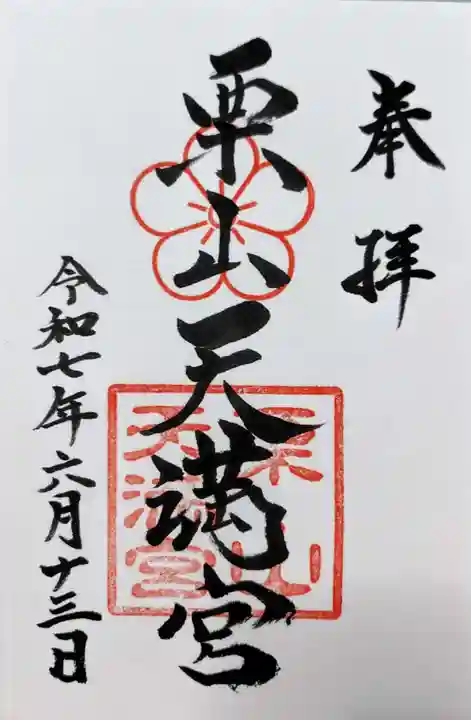 奉拝
栗山天満宮
栗山
天満宮
令和七年六月十三日